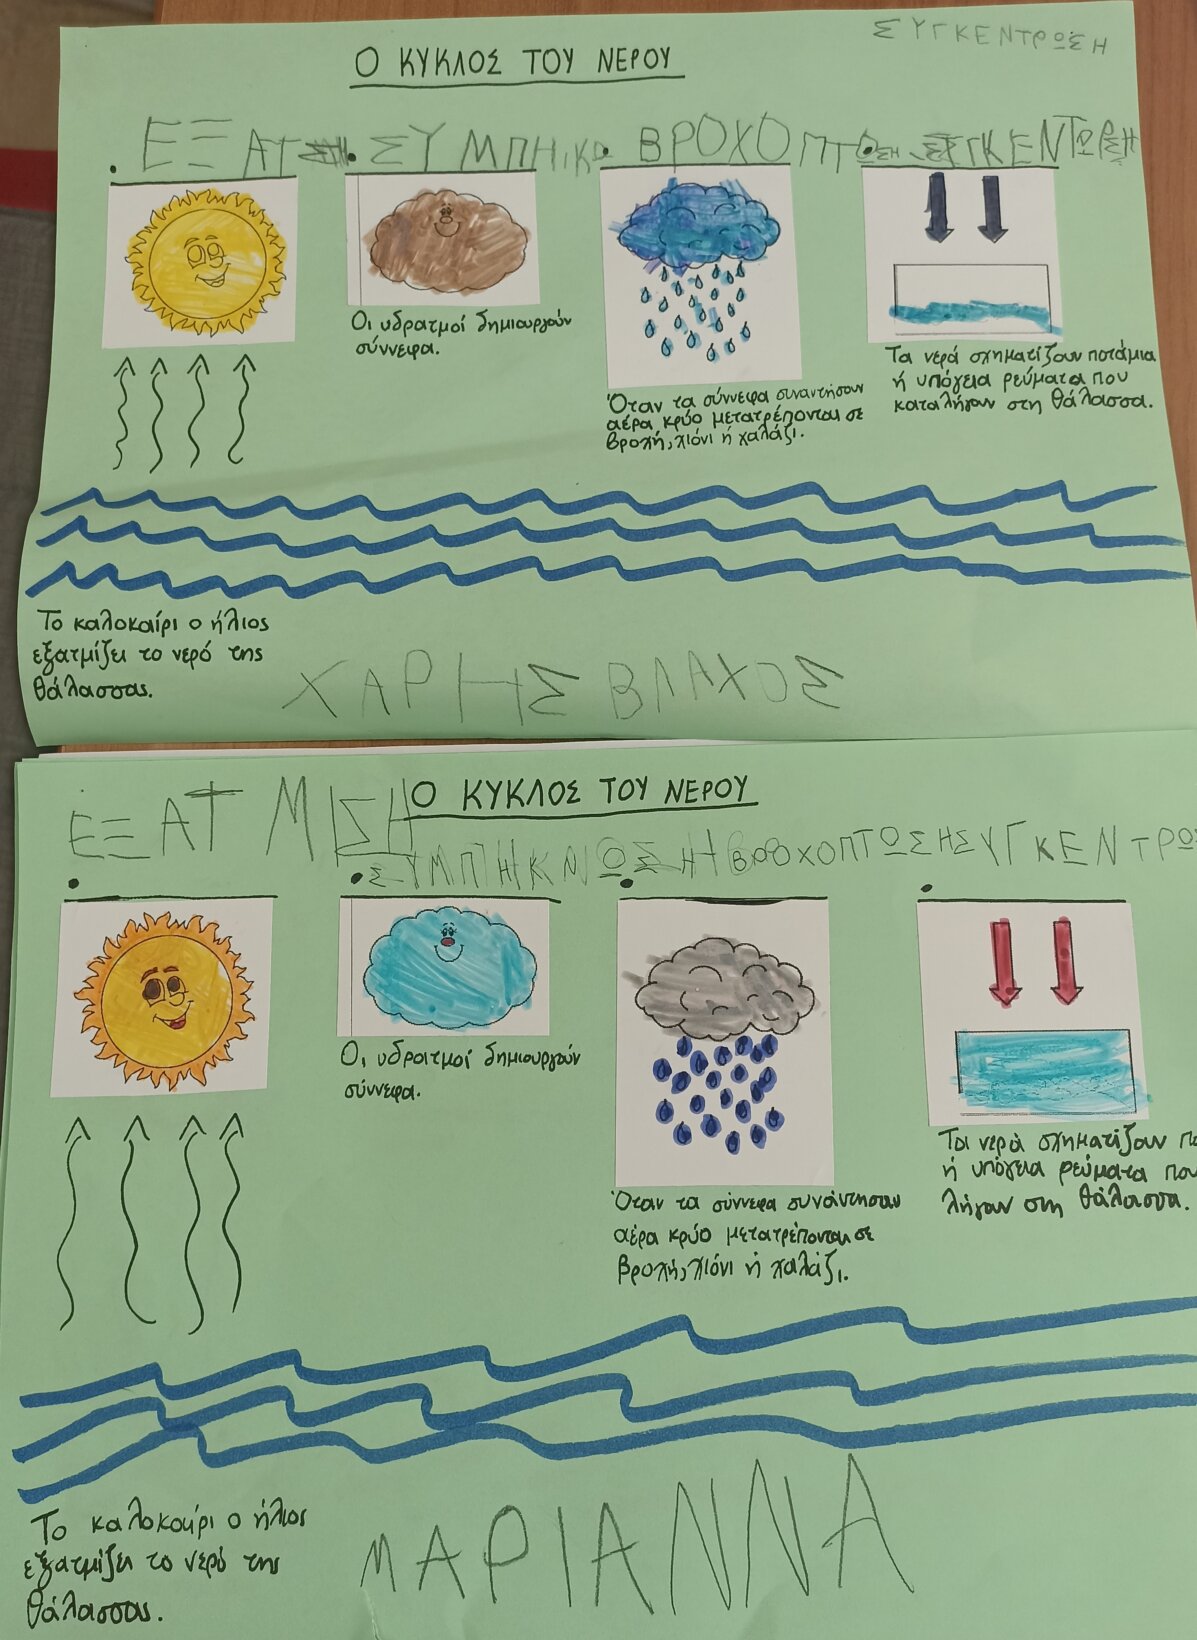 ΣΥΓΚΕΝΤΡΩΣΗ
Ο ΚΥΚΛΟΣ ΤΟΥ ΝΕΡΟΥ
ΕΞΑΤ ΣΥΜΠΗΚ ΒΡΟΧΟΠΤΩΣΗ
Οι υδρατμοί δημιουργούν
σύννεφα.
Όταν τα σύννεφα συναντήσουν
αέρα κρύο μετατρέπονται σε
βροχή, χιόνι ή χαλάζι.
Τα νερά σχηματίζουν ποτάμια
ή υπόγεια ρεύματα που
καταλήγουν στη θάλασσα.
Το καλοκαίρι ο ήλιος
εξατμίζει το νερό της
θάλασσας.
ΧΑΡΗΣ ΒΛΑΧΟΣ
Ο ΚΥΚΛΟΣ ΤΟΥ ΝΕΡΟΥ
ΕΞΑΤΜΙΣΗ
ΣΥΜΠΗΚΝΩΣΗ ΒΡΟΧΟΠΤΩΣΗ ΣΥΓΚΕΝΤΡΩΣ
Οι υδρατμοί δημιουργούν
σύννεφα.
Όταν τα σύννεφα συνάντησουν
αέρα κρύο μετατρέπονται σε
βροχή, χιόνι ή χαλάζι.
Τα νερά σχηματίζουν πο
ή υπόγεια ρεύματα που
λήγουν στη θάλασσα.
Το καλοκαίρι ο ήλιος
εξατμίζει το νερό της
θάλασσας.
ΜΑΡΙΑΝΝΑ